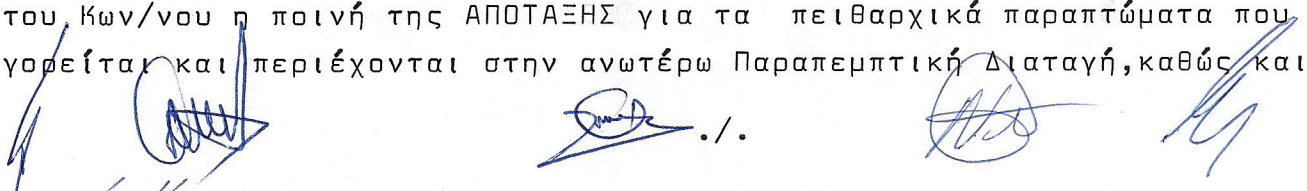 του Κων/νου η ποινή της ΑΠΟΤΑΞΗΣ για τα πειθαρχικά παραπτώματα που
γορείται και περιέχονται στην ανωτέρω Παραπεμπτική Διαταγή,καθώς και
./.